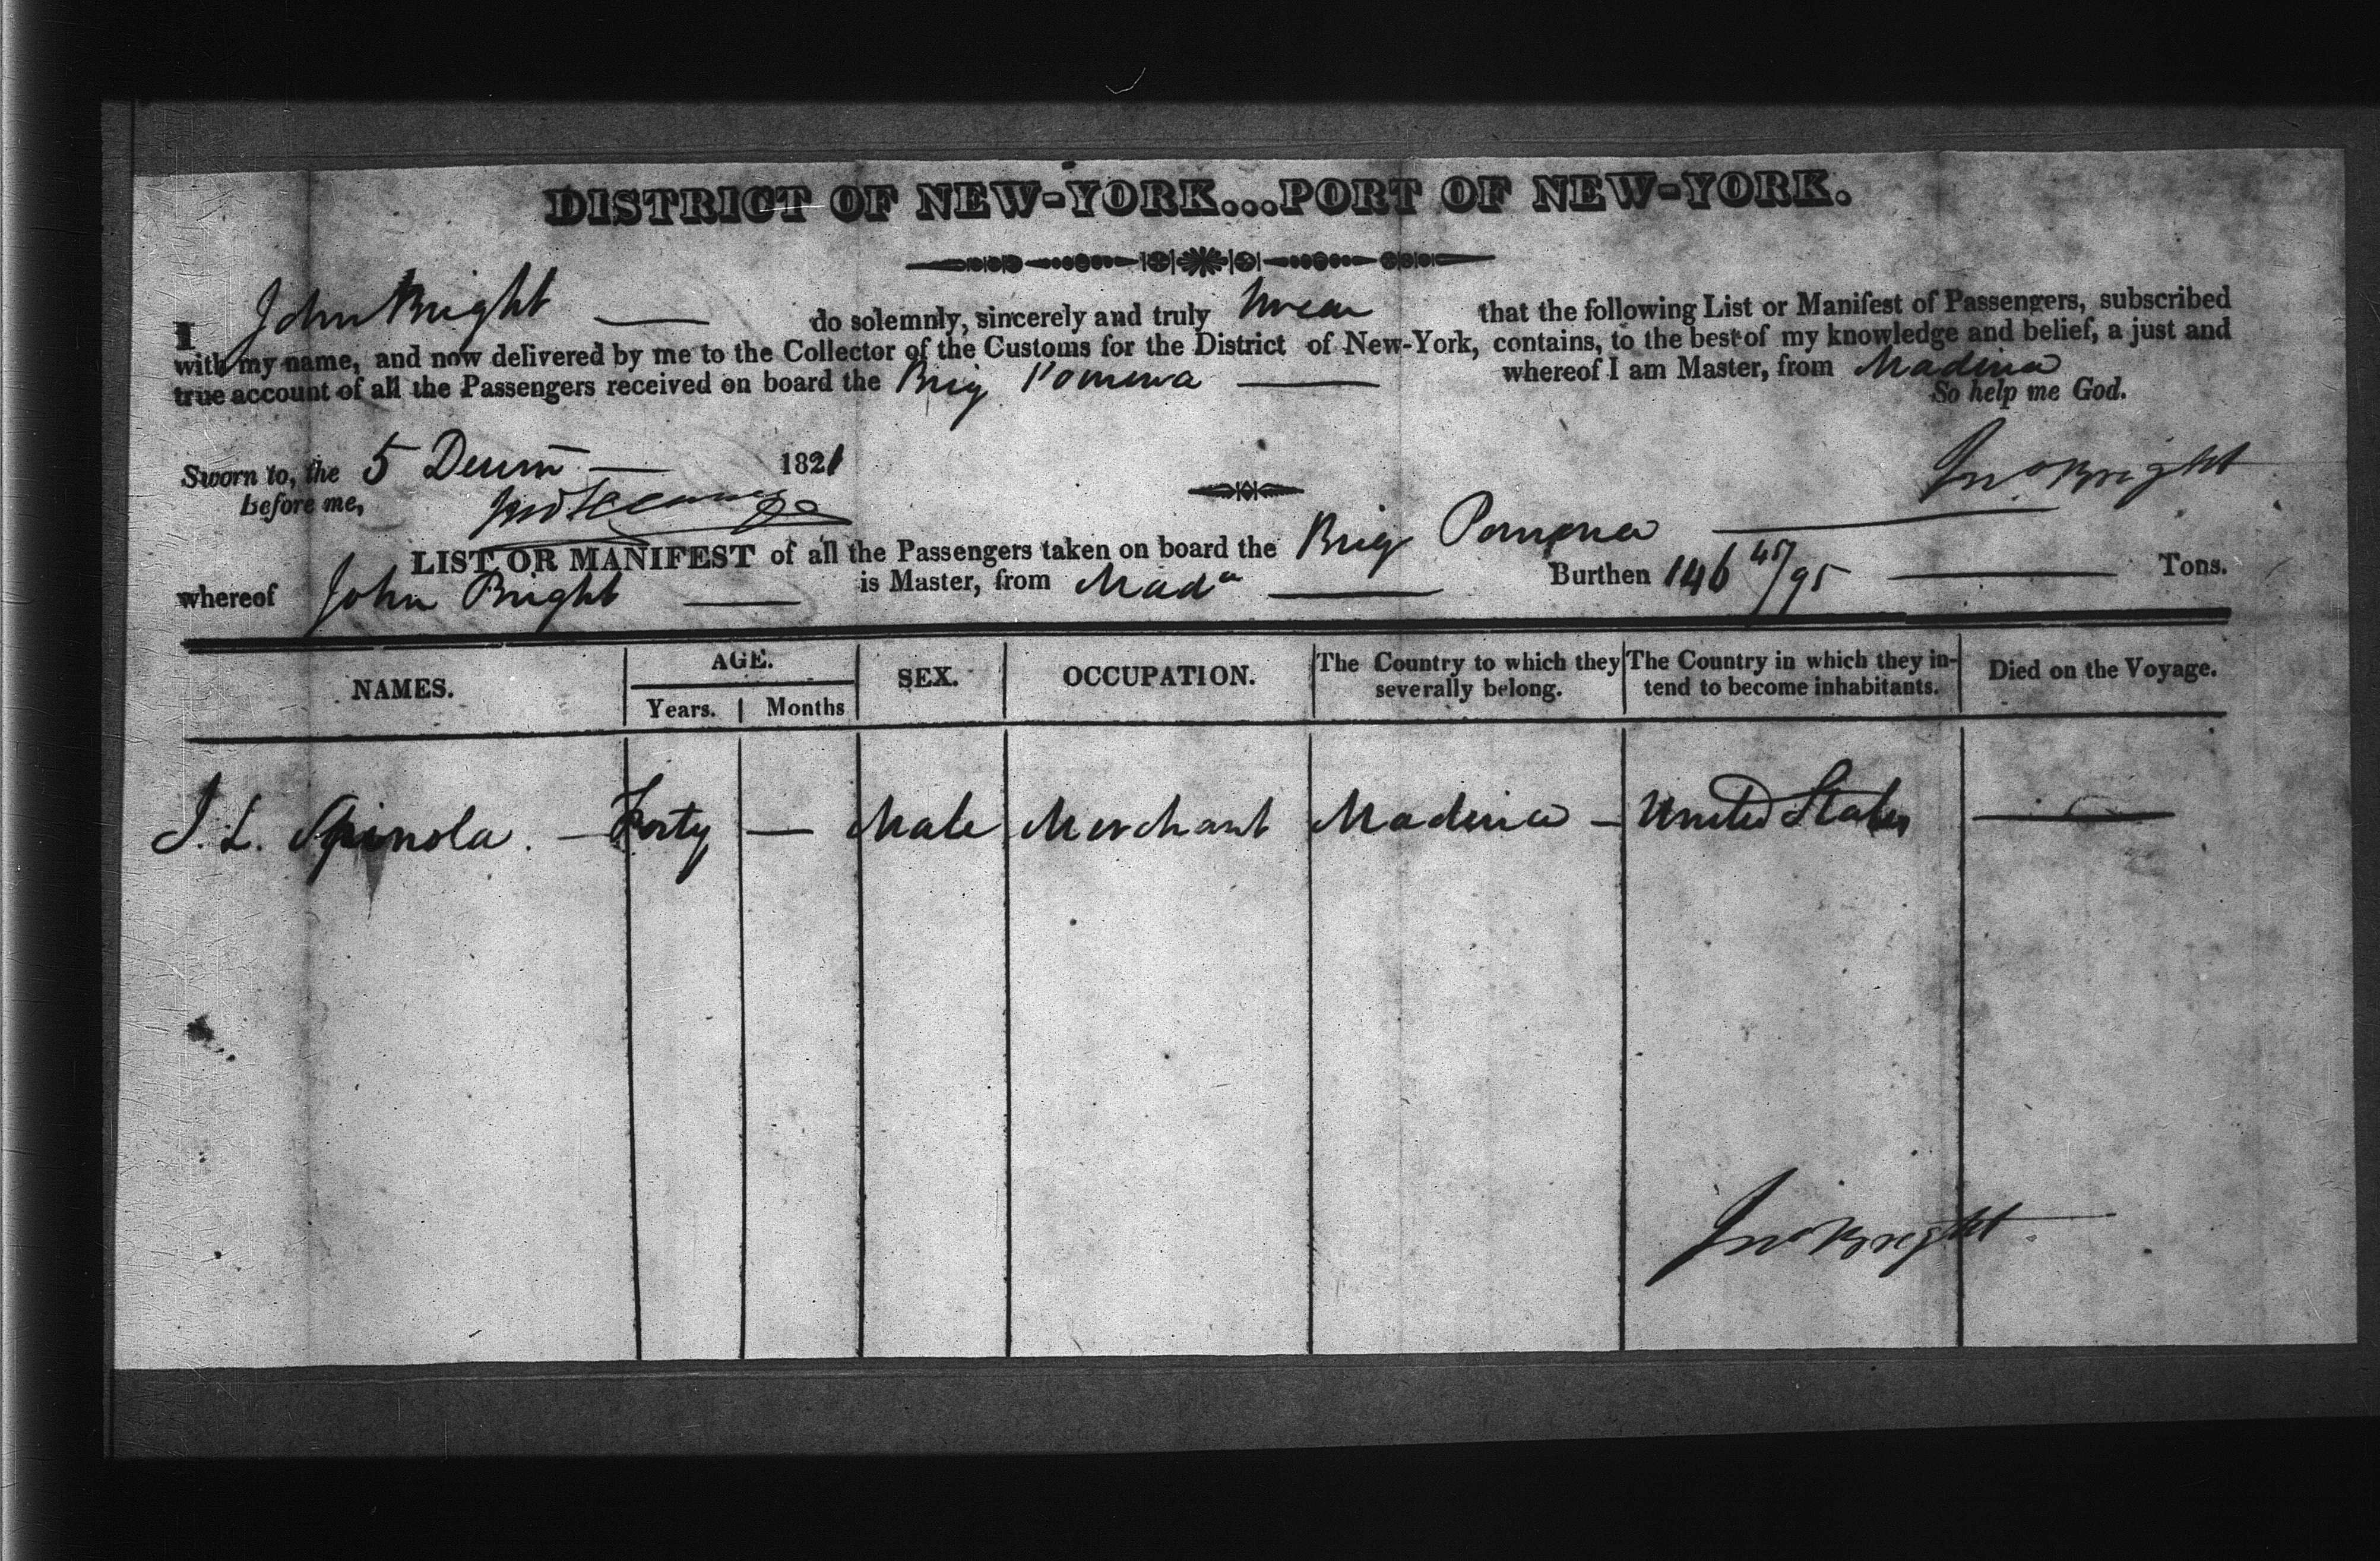 DISTRICT OF NEW-YORK...PORT OF NEW-YORK.
I John Bright do solemnly, sincerely and truly swear that the following List or Manifest of Passengers, subscribed
with my name, and now delivered by me to the Collector of the Customs for the District of New-York, contains, to the best of my knowledge and belief, a just and
true account of all the Passengers received on board the Brig Pomona whereof I am Master, from Madeira
So help me God.
Sworn to, the 5 Decem 1821
before me,
Jno Bright
LIST OR MANIFEST of all the Passengers taken on board the Brig Pomona
whereof John Bright is Master, from Mada Burthen 146 45/95 Tons.
NAMES. AGE. SEX. OCCUPATION. The Country to which they severally belong. The Country in which they intend to become inhabitants. Died on the Voyage.
Years. Months
J. L. Spinola. — Forty — Male Merchant Madeira — United States —
Jno Bright